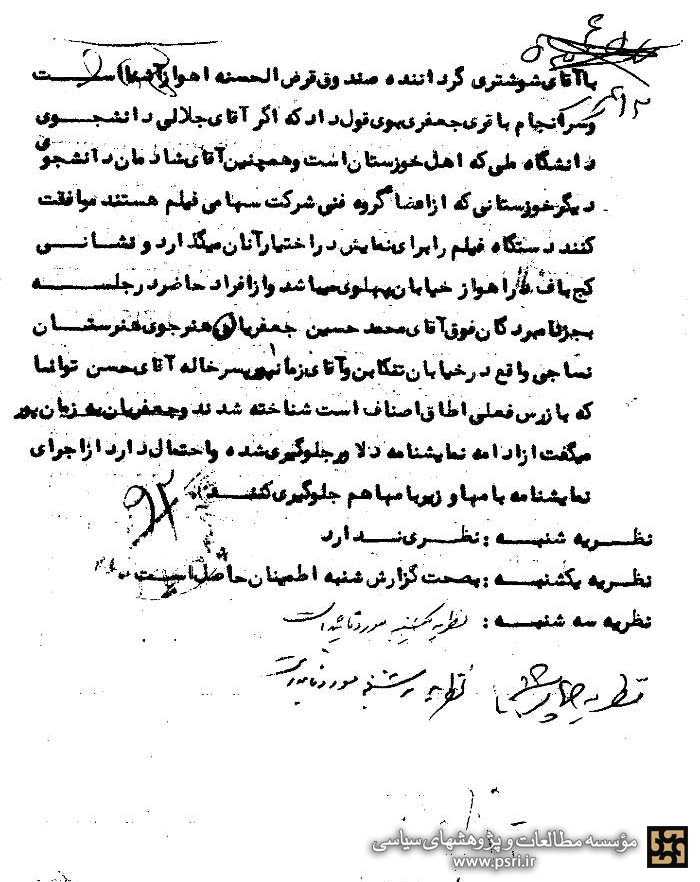 با آقای شوشتری گرداننده صندوق قرض الحسنه اهواز آشنا است
وسرانجام باقری جعفری بوی قول داد که اگر آقای جلالی دانشجوی
دانشگاه ملی که اهل خوزستان است وهمچنین آقای شادمان دانشجوی
دیگر خوزستانی که از اعضا گروه فنی شرکت سهامی فیلم هستند موافقت
کنند دستگاه فیلم را برای نمایش در اختیار آنان میگذارد و نشانی
کج باف در اهواز خیابان پهلوی میباشد و از افراد حاضر در جلسه
بجز نامبردگان فوق آقای محمد حسین جعفریان هنرجوی هنرستان
نساجی واقع در خیابان تنکابن و آقای زمانپور پسر خاله آقای حسن توانا
که بازرس فعلی اطاق اصناف است شناخته شدند وجعفریان به زمان پور
میگفت از ادامه نمایشنامه دلاور جلوگیری شده و احتمال دارد از اجرای
نمایشنامه با مها و زیر با مها هم جلوگیری کنند.
نظریه شنبه : نظری ندارد
نظریه یکشنبه : بصحت گزارش شنبه اطمینان حاصل است.
نظریه سه شنبه : نظریه یکشنبه مورد تائید است
نظریه چهارشنبه نظریه سه شنبه مورد تائید است
مؤسسه مطالعات و پژوهشهای سیاسی
www.psri.ir